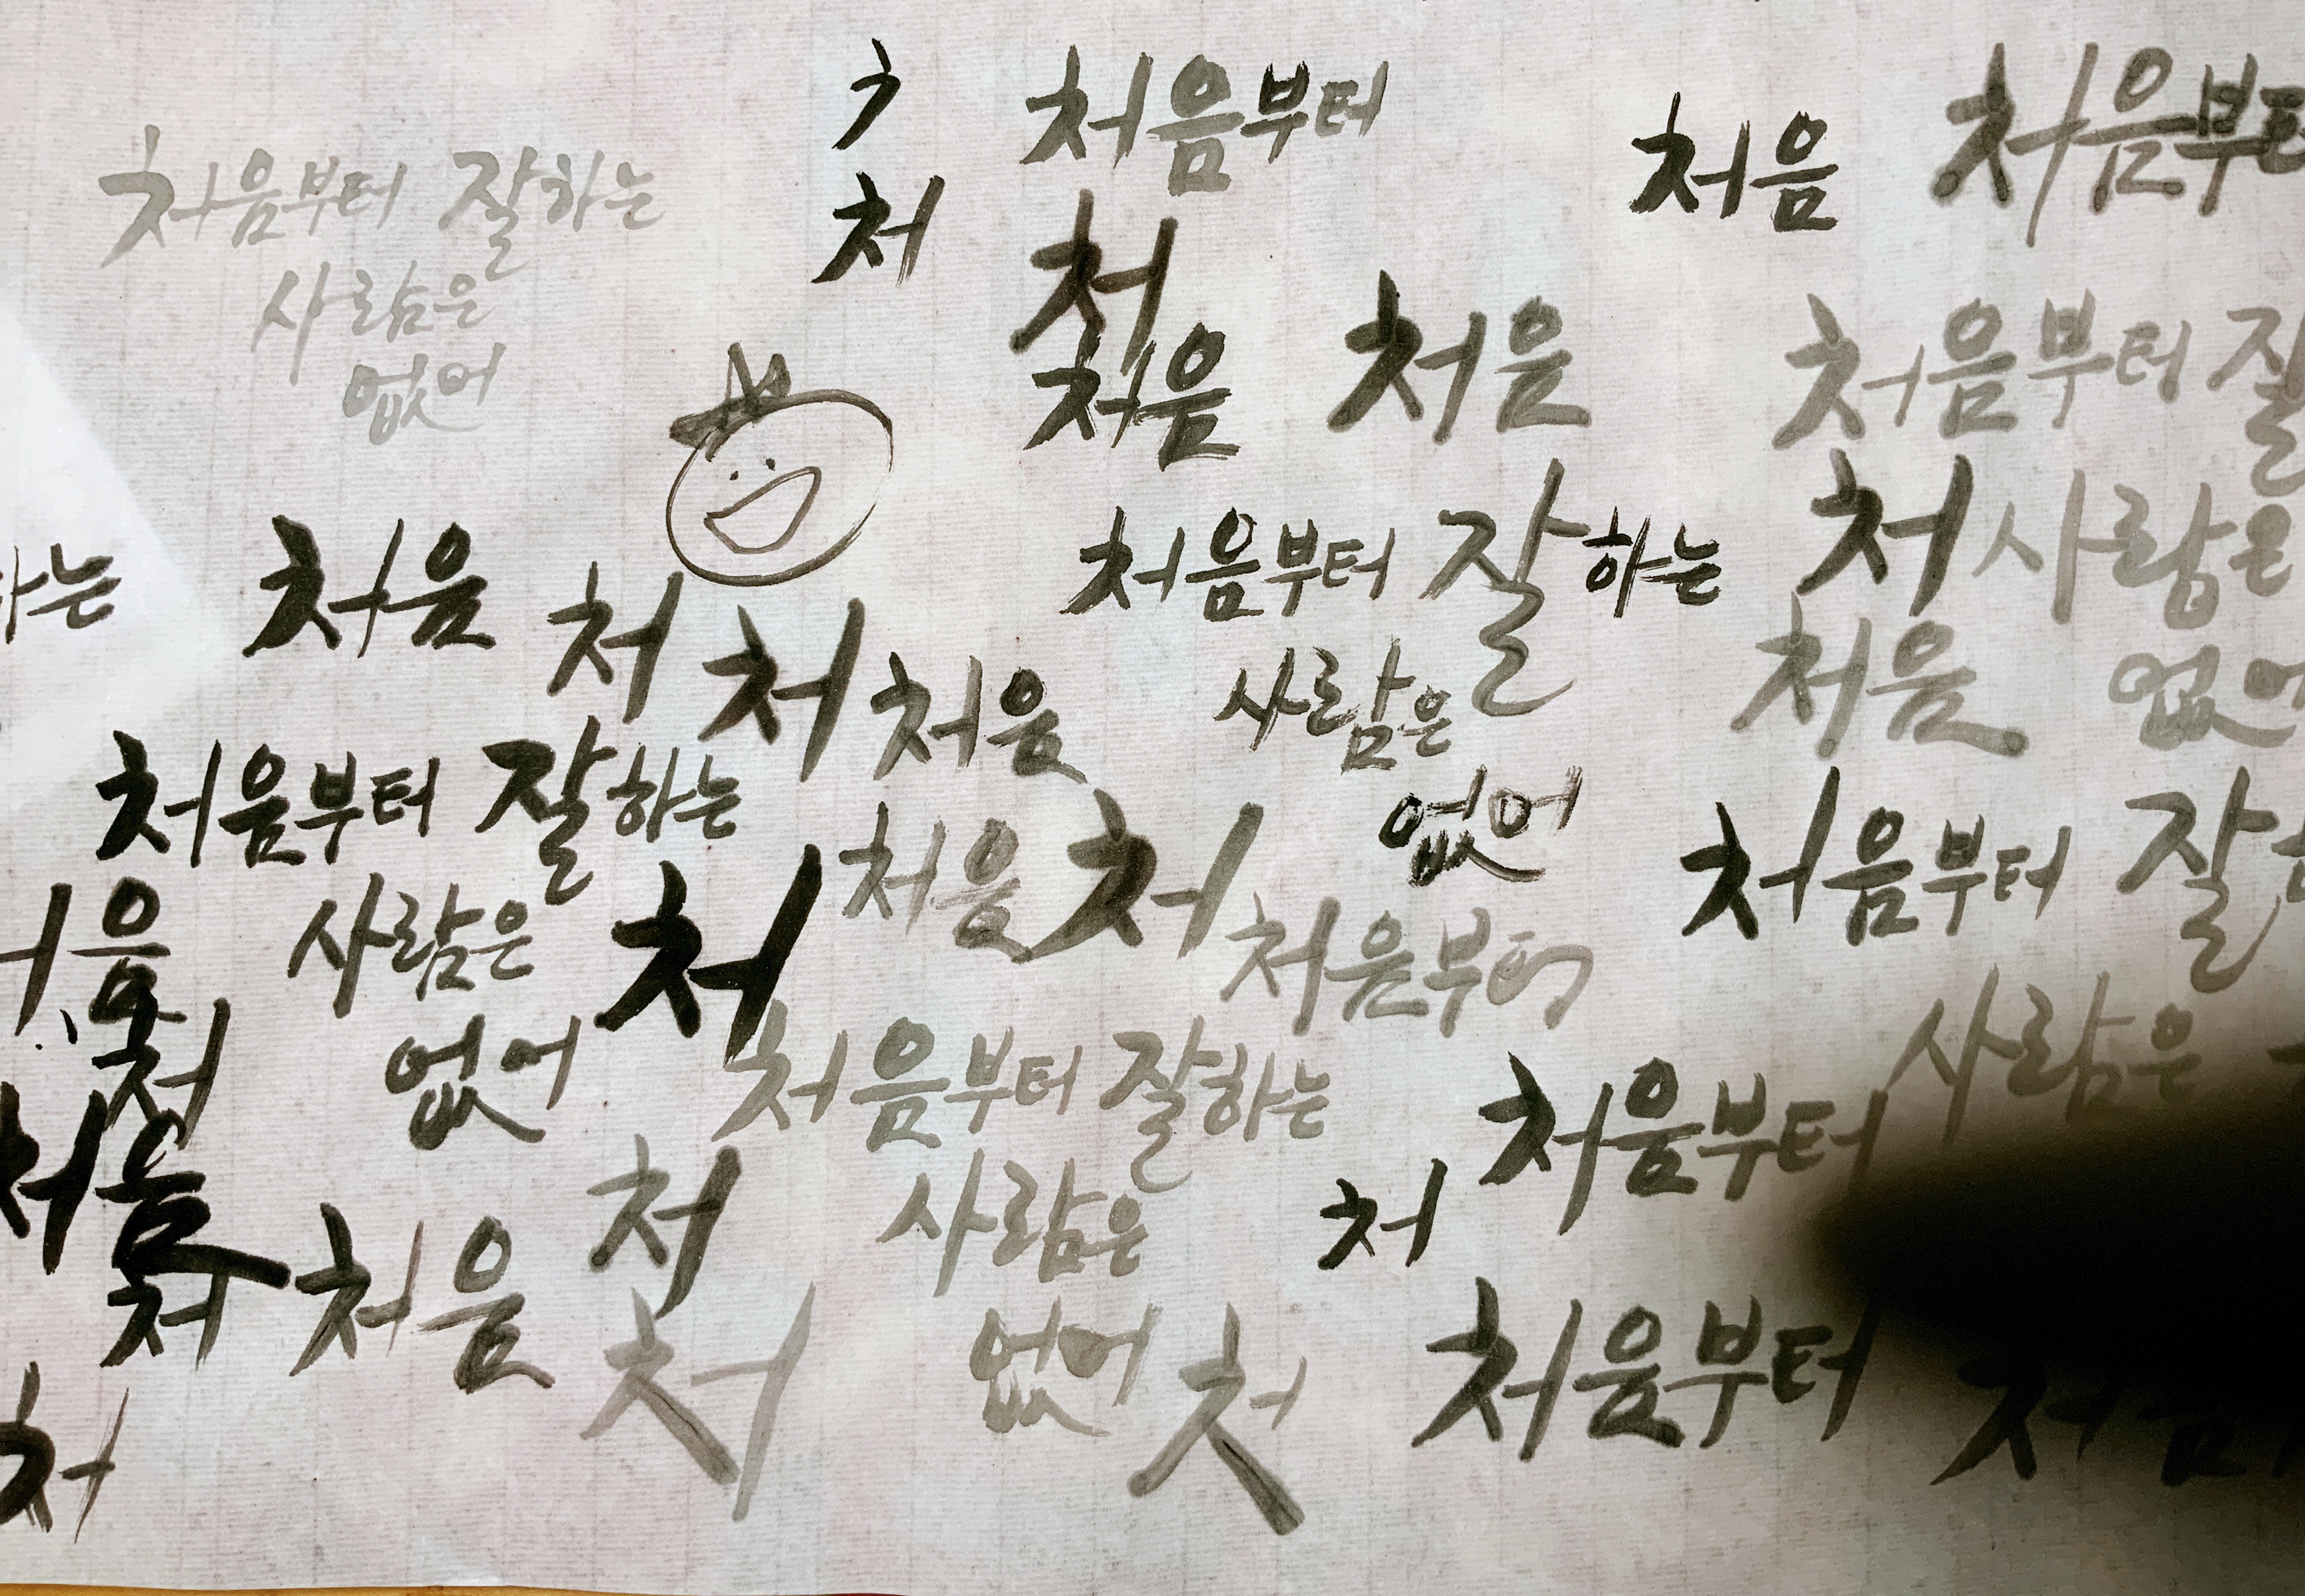 ㅊ 처음부터 처음 처음부터
처음부터 잘하는
사람은
없어
처
처
처음
처음
처음부터 잘
사람은
없어
처음부터 잘하는
사람은
없어
처
처음
하는
처음
처
처
처음
처음부터 잘하는
사람은
없어
처음
처
처
처음부터
처음부터 잘
사람은
처음부터 잘하는
사람은
없어
처음부터
처
처음부터
음
처
처음
처
처음
처
처
처
처
처음